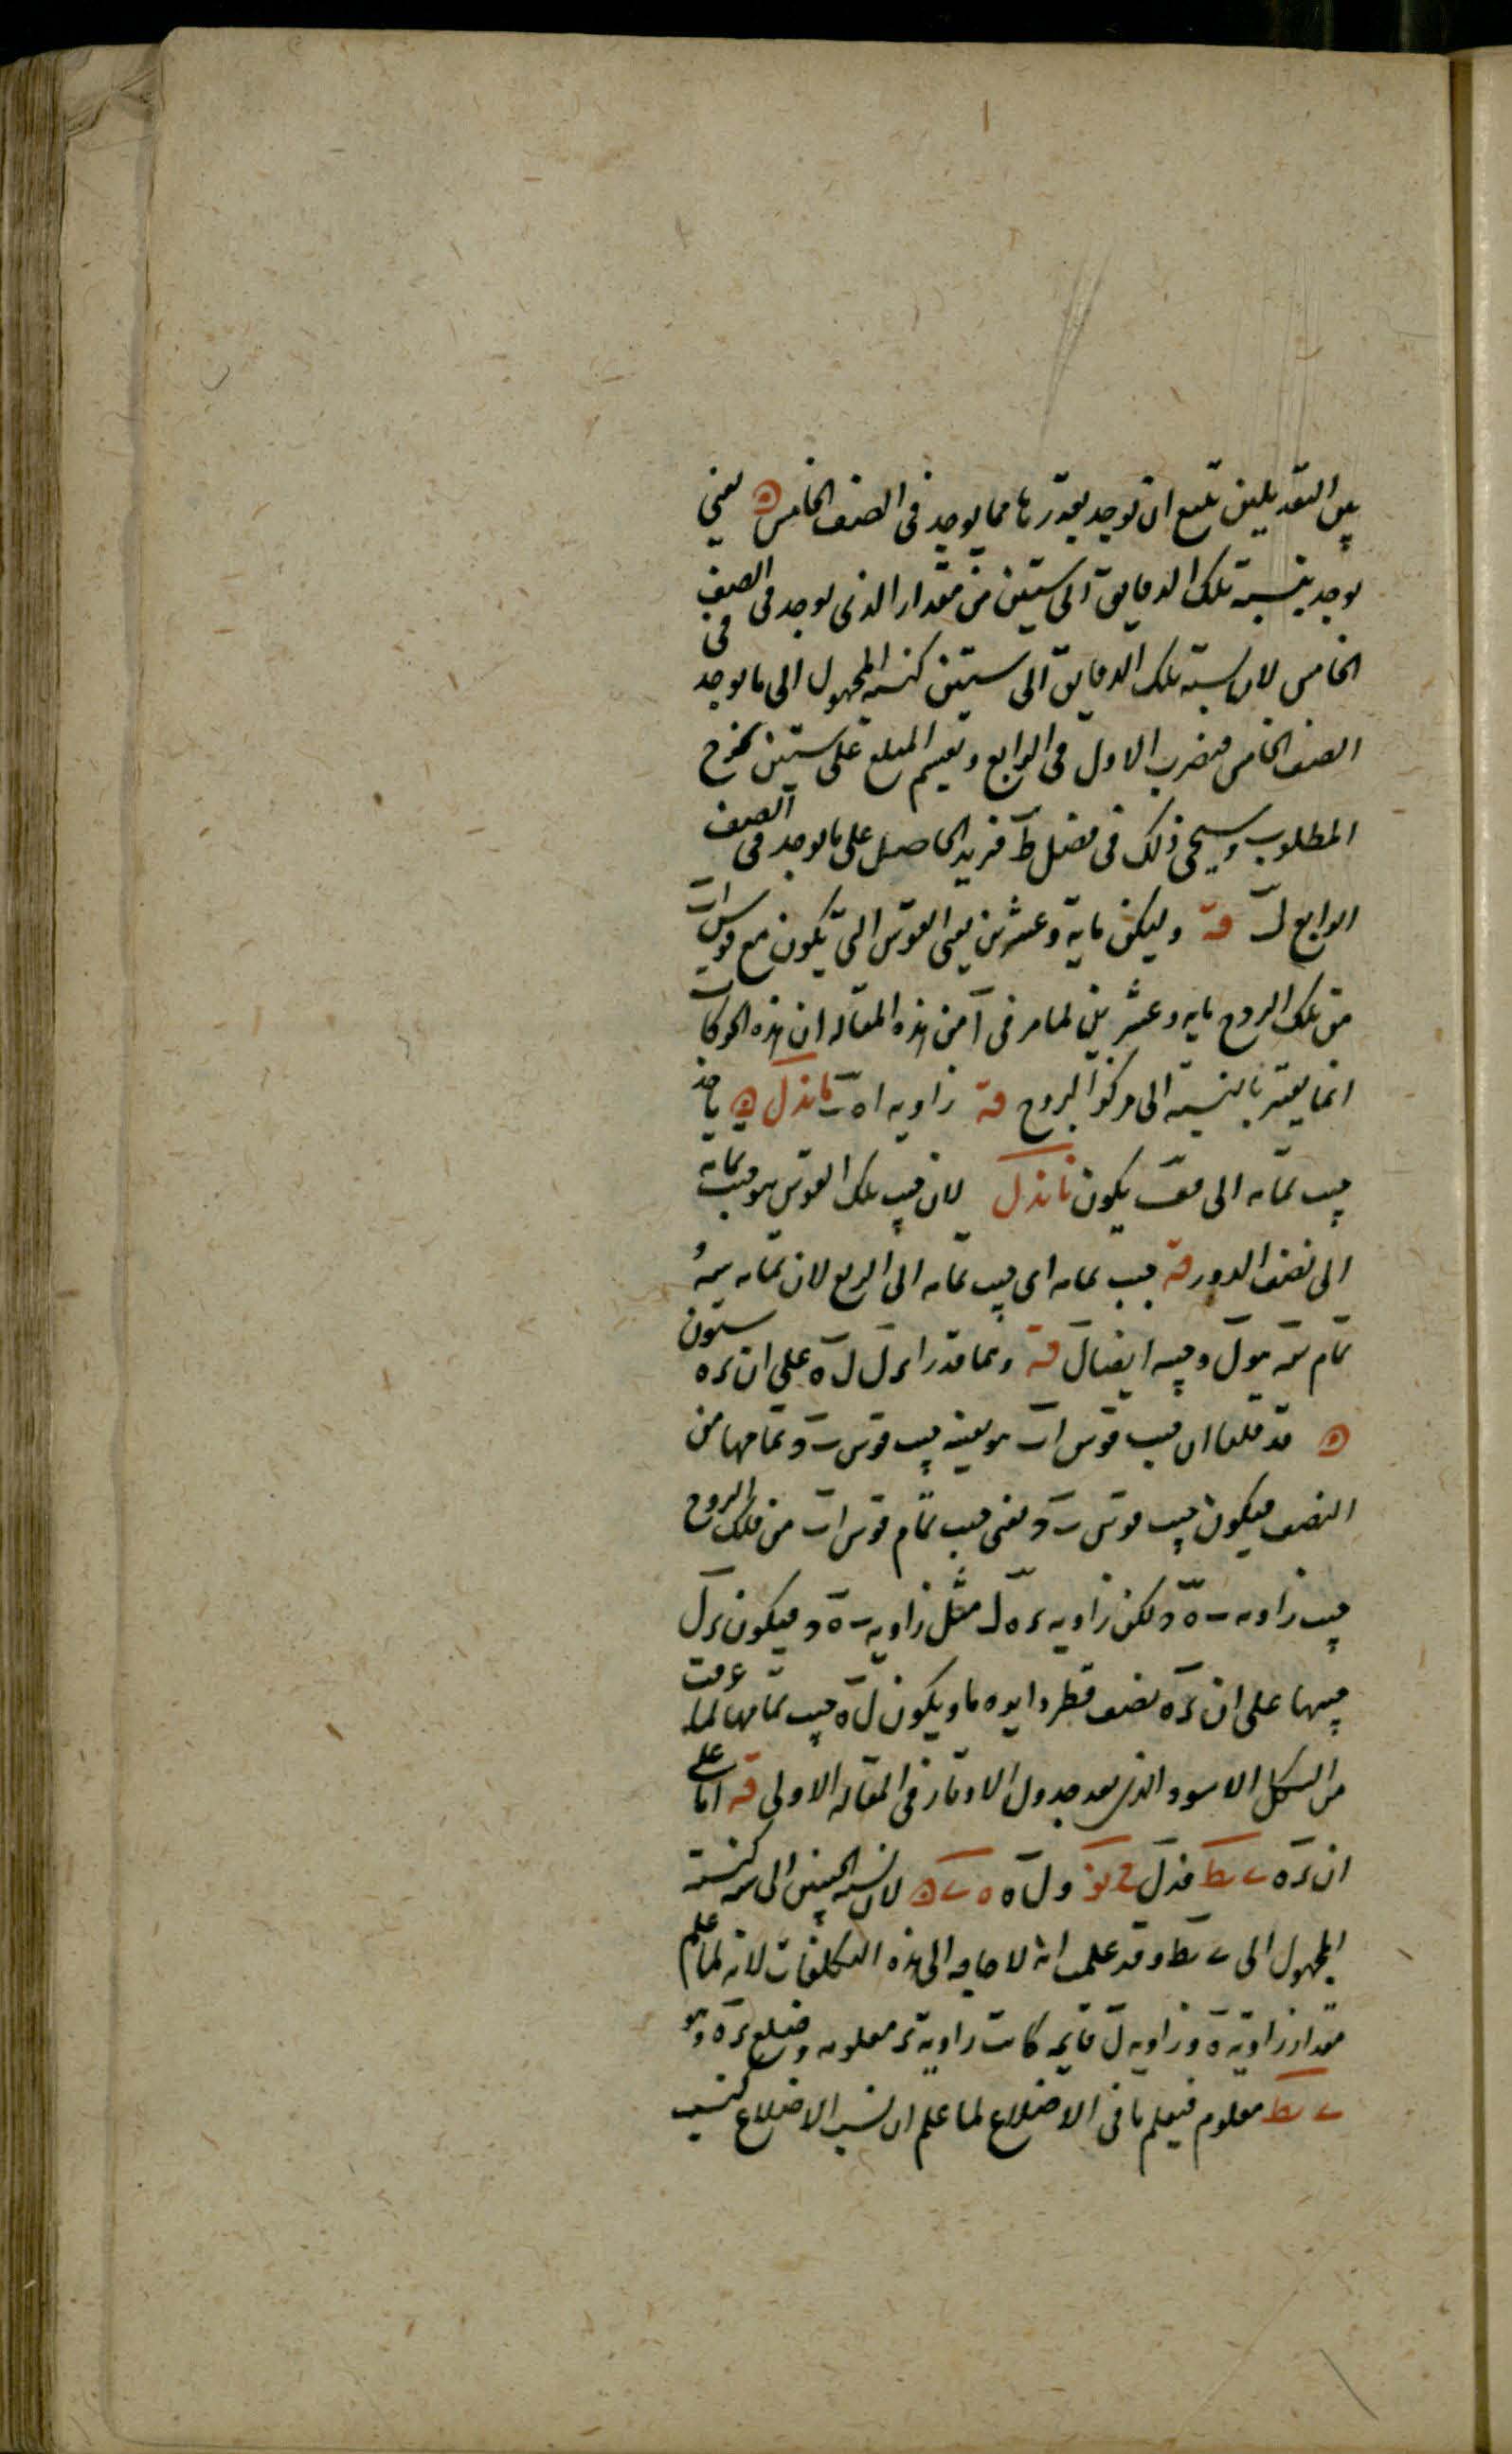 بين التعديلين تتبع ان توجد بقدرها مما يوجد فى الصف الخامس ه يعنى
يوجد بنسبة تلك الدقايق الى ستين من مقدار الذى يوجد فى الصف
الخامس لان نسبة تلك الدقايق الى ستين كنسبة المجهول الى ما يوجد فى
الصف الخامس فيضرب الاول فى الرابع ونقسم المبلغ على ستين يخرج
المطلوب وسيجى ذلك فى فصل ط فنزيد الحاصل على ما يوجد فى الصف
الرابع ل قه وليكن ماية وعشرين يعنى القوس التى تكون مع قوس ا ب
من تلك البروج ماية وعشرين لما مر فى ا من هذه المقاله ان هذه الحركات
انما يعتبر بالنسبة الى مركز البروج قه زاويه ا ه ب نا ند ل ه ياخذ
جيب تمامه الى قف يكون نا ند ل لان جيب تلك القوس هو جيب تمامه
الى نصف الدور قه جيب تمامه اى جيب تمامه الى الربع لان تمامه سه و
تمام سه هو ل وجيبه ايضا ل قه وهما قدرا نر ل ل ه على ان نر ه ستون
ه قد قلنا ان جيب قوس ا ب هو بعينه جيب قوس ب د تمامها من
النصف فيكون جيب قوس ب د يعنى جيب تمام قوس ا ب من فلك البروج
جيب زاويه ب ه د لكن زاويه نر ه ل مثل زاويه ب ه د فيكون نر ل
جيبها على ان نر ه نصف قطر دايره ما ويكون ل ه جيب تمامها لما عرفت
من الشكل الاسود الذى بعد جدول الاوتار فى المقاله الاولى قه اما على
ان نر ه ى يط فنر ل ح نو و ل ه ه ى ه لان نسبة الجيبين الى سه كنسبة
المجهول الى ى يط وقد علمت انه لا حاجه الى هذه التكلفات لانه لما علم
مقدار زاوية ه وزاويه ل قايمه كانت زاوية نر معلومه وضلع نر ه وهو
ى يط معلوم فيعلم باقى الاضلاع لما علم ان نسب الاضلاع كنسب